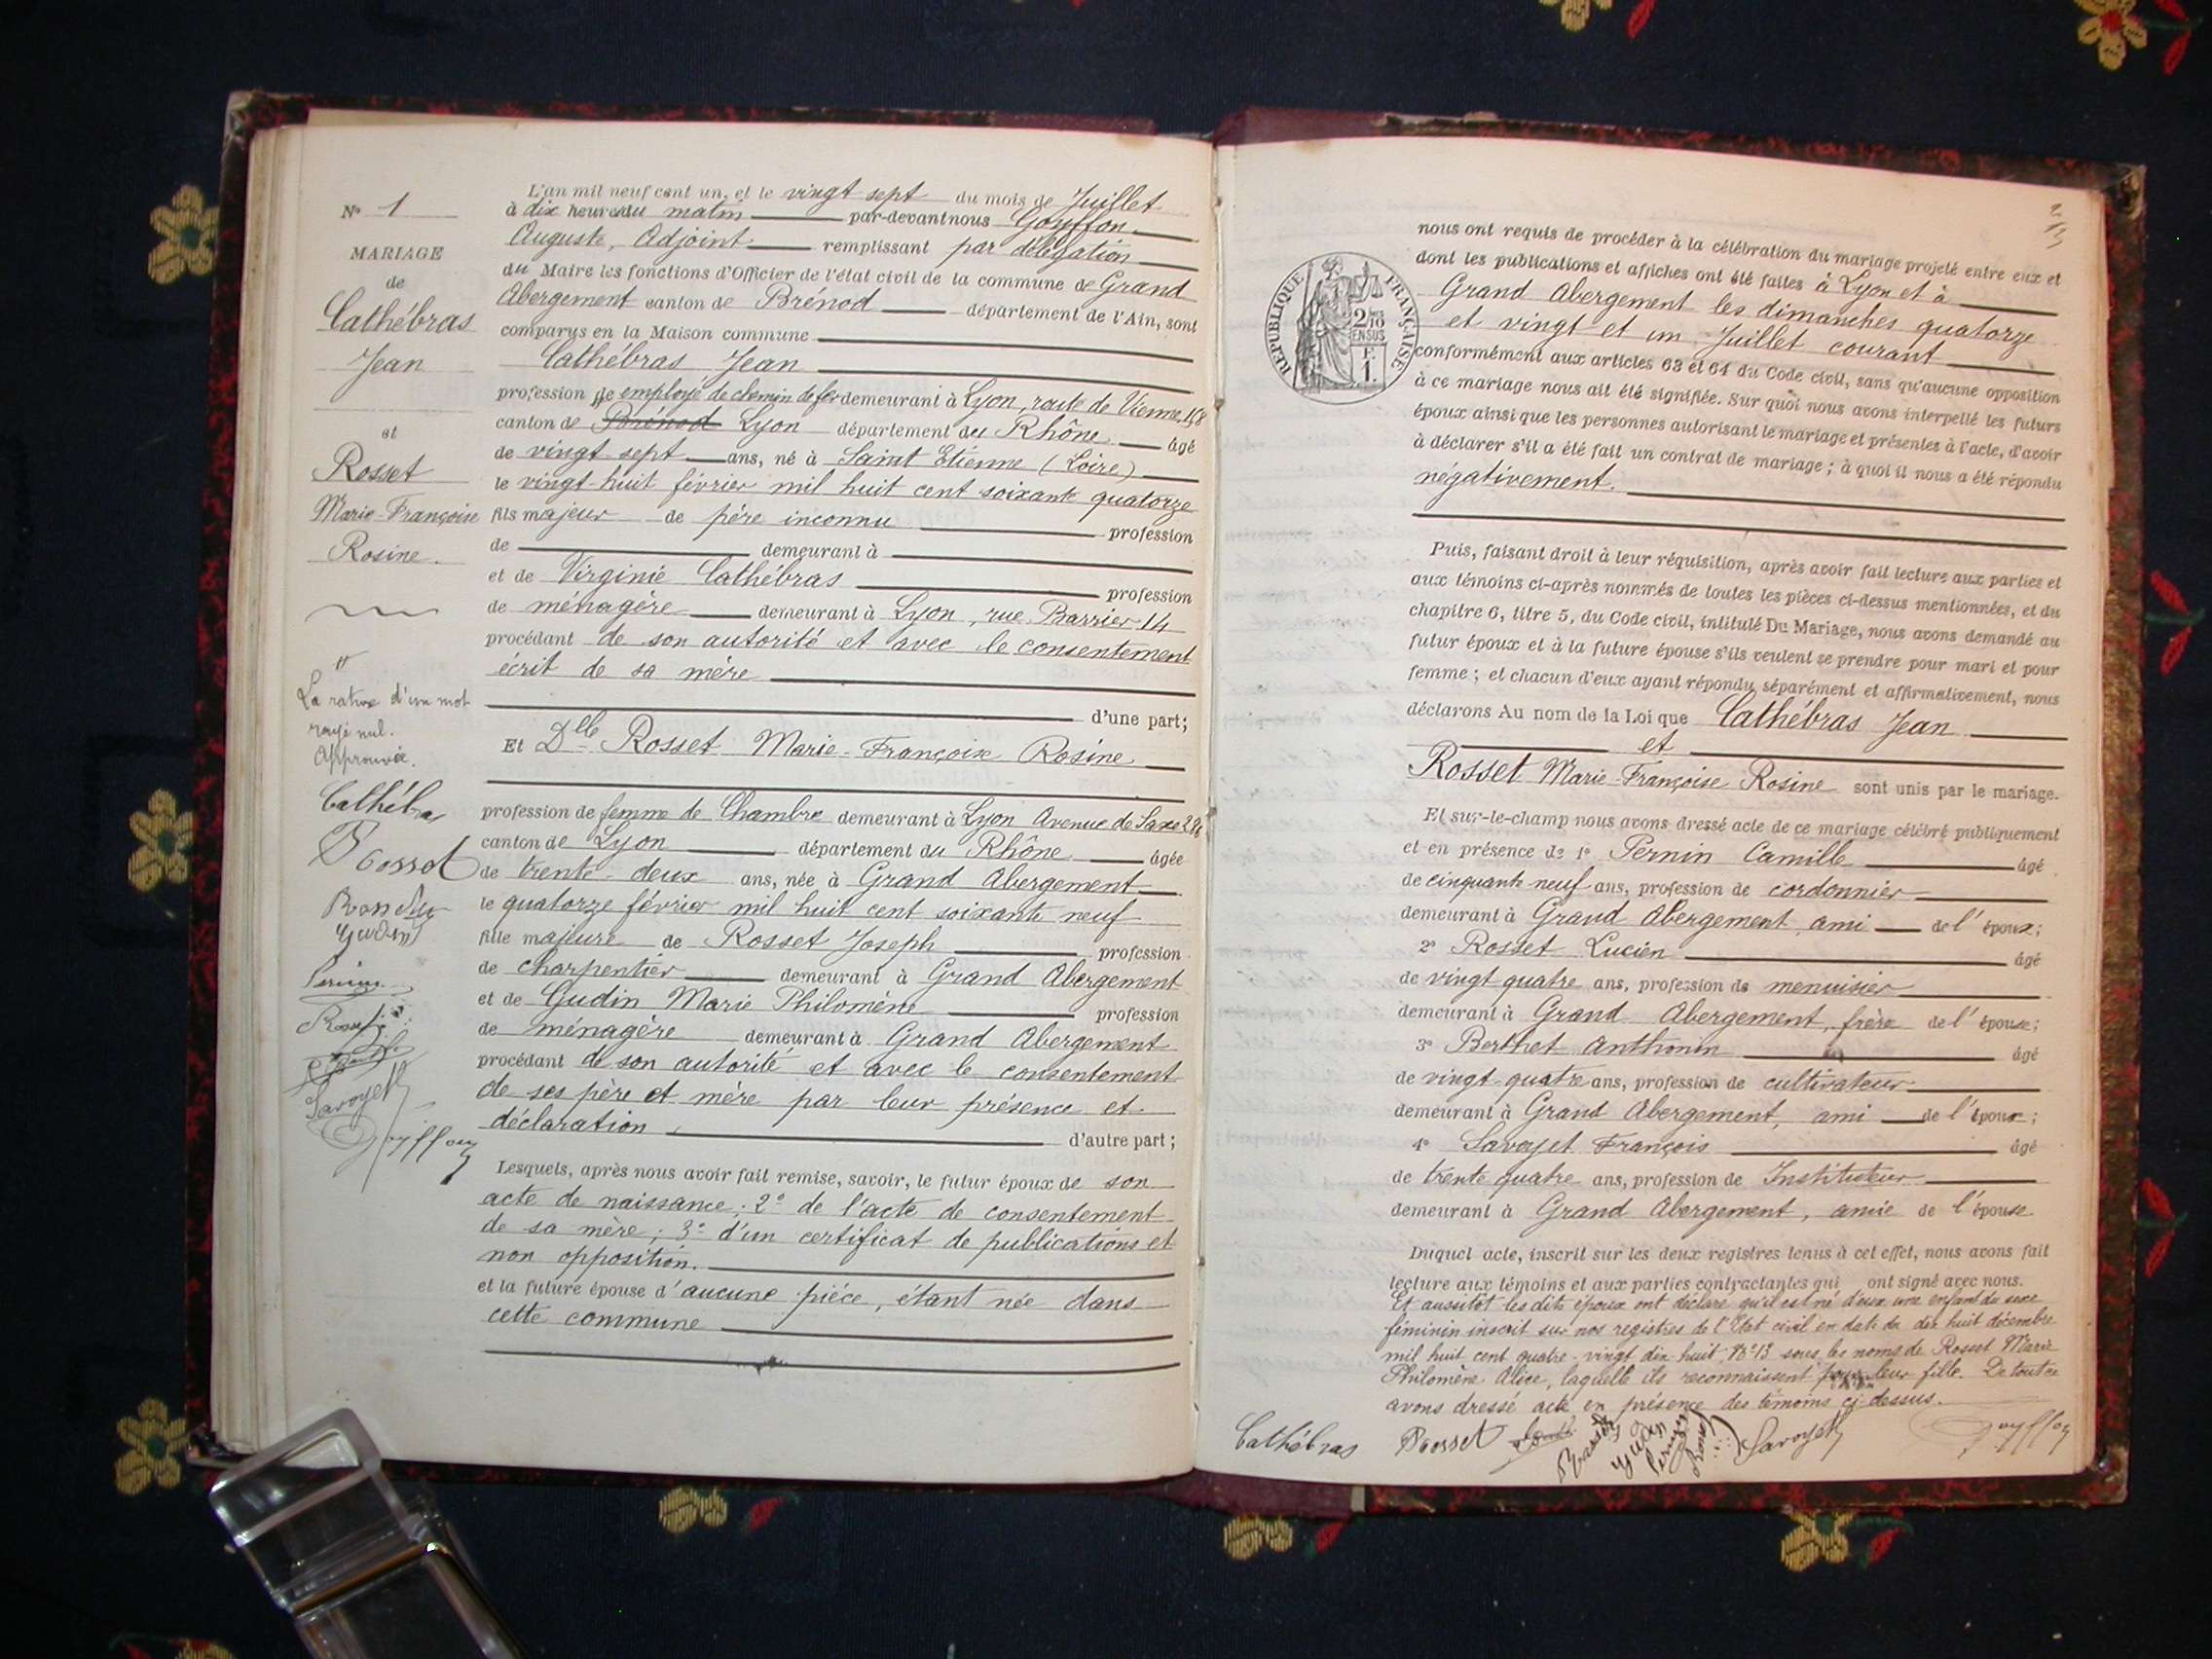 N° 1
MARIAGE
de
Cathébras
Jean
et
Rosset
Marie-Françoise
Rosine.
La rature d'un mot
rayé nul.
Approuvée.
Cathébras
Rosset
Gudin
Pernin
Savoyet
Goyffon
L'an mil neuf cent un, et le vingt sept du mois de Juillet
à dix heures du matin par-devant nous Goyffon
Auguste, Adjoint remplissant par délégation
du Maire les fonctions d'Officier de l'état civil de la commune de Grand
Abergement canton de Brénod département de l'Ain, sont
comparus en la Maison commune
Cathébras Jean
profession de employé de chemin de fer demeurant à Lyon, route de Vienne, 158
canton de Brénod Lyon département du Rhône âgé
de vingt-sept ans, né à Saint Etienne (Loire)
le vingt-huit février mil huit cent soixante quatorze
fils majeur de père inconnu profession
de demeurant à
et de Virginie Cathébras profession
de ménagère demeurant à Lyon, rue Barrier 14
procédant de son autorité et avec le consentement
écrit de sa mère
d'une part;
Et Dlle Rosset Marie-Françoise Rosine
profession de femme de Chambre demeurant à Lyon Avenue de Saxe
canton de Lyon département du Rhône âgée
de trente-deux ans, née à Grand Abergement
le quatorze février mil huit cent soixante neuf
fille majeure de Rosset Joseph profession
de charpentier demeurant à Grand Abergement
et de Gudin Marie Philomène profession
de ménagère demeurant à Grand Abergement
procédant de son autorité et avec le consentement
de ses père et mère par leur présence et
déclaration d'autre part;
Lesquels, après nous avoir fait remise, savoir, le futur époux de son
acte de naissance; 2° de l'acte de consentement
de sa mère; 3° d'un certificat de publications et
non opposition.
et la future épouse d'aucune pièce, étant née dans
cette commune
RÉPUBLIQUE FRANÇAISE
2/10
EN SUS
F.
1.
nous ont requis de procéder à la célébration du mariage projeté entre eux et
dont les publications et affiches ont été faites à Lyon et à
Grand Abergement les dimanches quatorze
et vingt et un Juillet courant
conformément aux articles 63 et 64 du Code civil, sans qu'aucune opposition
à ce mariage nous ait été signifiée. Sur quoi nous avons interpellé les futurs
époux ainsi que les personnes autorisant le mariage et présentes à l'acte, d'avoir
à déclarer s'il a été fait un contrat de mariage; à quoi il nous a été répondu
négativement.
Puis, faisant droit à leur réquisition, après avoir fait lecture aux parties et
aux témoins ci-après nommés de toutes les pièces ci-dessus mentionnées, et du
chapitre 6, titre 5, du Code civil, intitulé Du Mariage, nous avons demandé au
futur époux et à la future épouse s'ils veulent se prendre pour mari et pour
femme; et chacun d'eux ayant répondu séparément et affirmativement, nous
déclarons Au nom de la Loi que Cathébras Jean
et
Rosset Marie-Françoise Rosine sont unis par le mariage.
Et sur-le-champ nous avons dressé acte de ce mariage célébré publiquement
et en présence de 1° Pernin Camille âgé
de cinquante neuf ans, profession de cordonnier
demeurant à Grand Abergement, ami de l'époux;
2° Rosset Lucien âgé
de vingt quatre ans, profession de menuisier
demeurant à Grand Abergement, frère de l'épouse;
3° Berthet Anthonin âgé
de vingt-quatre ans, profession de cultivateur
demeurant à Grand Abergement, ami de l'époux;
4° Savoyet François âgé
de trente quatre ans, profession de Instituteur
demeurant à Grand Abergement, amie de l'épouse
Duquel acte, inscrit sur les deux registres tenus à cet effet, nous avons fait
lecture aux témoins et aux parties contractantes qui ont signé avec nous.
Et aussitôt les dits époux ont déclaré qu'il est né d'eux une enfant du sexe
féminin inscrit sur nos registres de l'Etat civil en date du dix huit décembre
mil huit cent quatre-vingt dix-huit, N° 13 sous les noms de Rosset Marie
Philomène Alice, laquelle ils reconnaissent pour leur fille. De tout ce
avons dressé acte en présence des témoins ci-dessus.
Cathébras Rosset Gudin Pernin Rosset Savoyet Goyffon